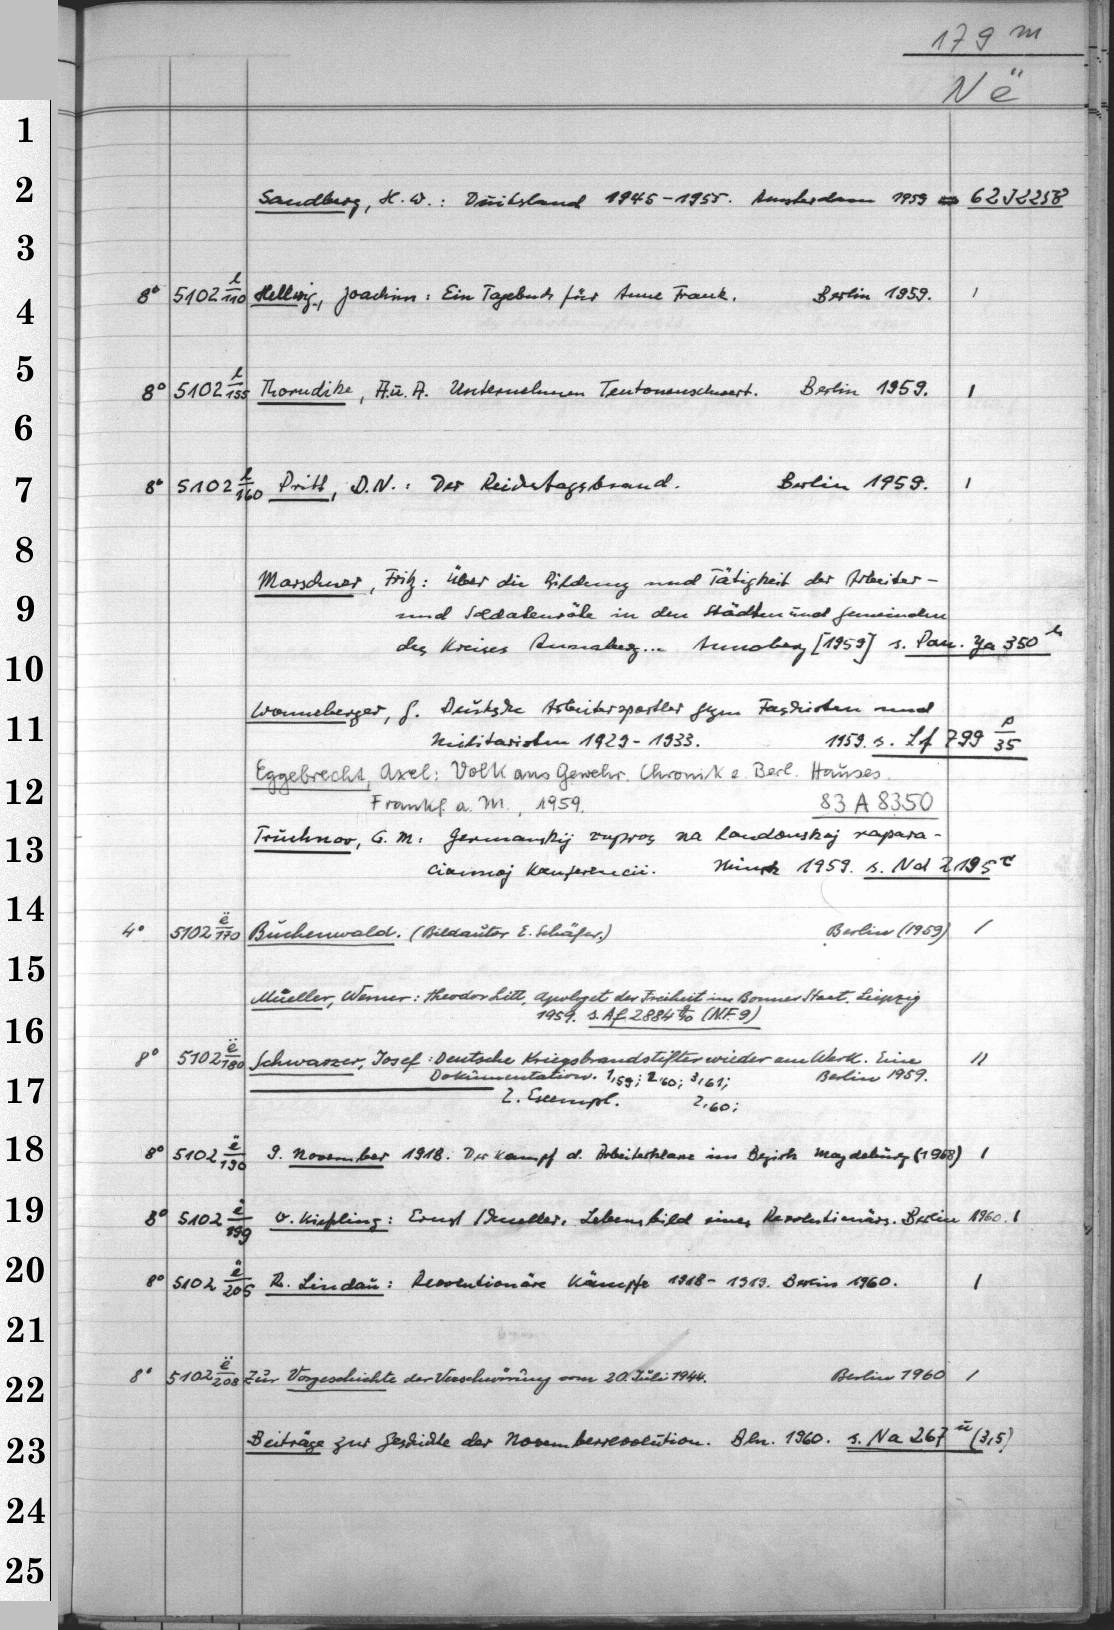 179 m
N ë
1
2
Sandberg, H. W.: Duitsland 1945-1955. Amsterdam 1959 = 62 J 2258
3
8° 5102 l/110 Hellwig, Joachim: Ein Tagebuch für Anne Frank. Berlin 1959. 1
4
5
8° 5102 l/155 Thorndike, A. u. A. Unternehmen Teutonenschwert. Berlin 1959. 1
6
7
8° 5102 l/160 Pritt, D. N.: Der Reichstagsbrand. Berlin 1959. 1
8
Marschner, Fritz: Über die Bildung und Tätigkeit der Arbeiter-
9
und Soldatenräte in den Städten und Gemeinden
des Kreises Annaberg... Annaberg [1959] s. Pan. Ya 350
10
Wonneberger, G. Deutsche Arbeitersportler gegen Faschisten und
11
Militaristen 1929-1933. 1959. s. Lf 799 p/35
Eggebrecht, Axel: Volk ans Gewehr. Chronik e. Berl. Hauses.
12
Frankf. a. M., 1959. 83 A 8350
Truchnov, G. M: Germanskij vopros na Londonskoj repara-
13
cionnoj Konferencii. Minsk 1959. s. Nd 7195
14
4° 5102 ë/170 Buchenwald. (Bildautor E. Schäfer.) Berlin (1959) 1
15
Mueller, Werner: Theodor Litt, Apologet der Freiheit im Bonner Staat. Leipzig
16
1959. s. Af 2884 (NF. 9)
8° 5102 ë/180 Schwarzer, Josef: Deutsche Kriegsbrandstifter wieder am Werk. Eine 11
17
Dokumentation. 1,59; 2,60; 3,61; Berlin 1959.
2. Exempl. 2,60;
18
8° 5102 ë/190 9. November 1918. Der Kampf d. Arbeiterklasse im Bezirk Magdeburg (1968) 1
19
8° 5102 ë/199 v. Kiepling: Ernst Schneller. Lebensbild eines Revolutionärs. Berlin 1960. 1
20
8° 5102 ë/205 R. Lindau: Revolutionäre Kämpfe 1918-1919. Berlin 1960. 1
21
22
8° 5102 ë/208 Zur Vorgeschichte der Verschwörung vom 20. Juli 1944. Berlin 1960 1
23
Beiträge zur Geschichte der Novemberrevolution. Bln. 1960. s. Na 267 ü (3,5)
24
25